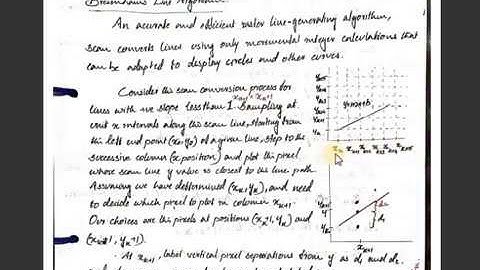 Bresenham's Line Algorithm
An accurate and efficient raster line-generating algorithm,
scan converts lines using only incremental integer calculations that
can be adapted to display circles and other curves.
Consider the scan conversion process for
lines with +ve slope less than 1. Sampling at
unit x intervals along this scan line, starting from
this left end point (x₀, y₀) of a given line, step to the
successive column (x position) and plot the pixel
whose scan line y value is closest to the line path
Assuming we have determined (xₖ, yₖ), and need
to decide which pixel to plot in column xₖ₊₁
Our choices are the pixels at positions (xₖ+1, yₖ) and
(xₖ+1, yₖ+1).
At xₖ₊₁, label vertical pixel separations from y as d₁ and d₂.
y=mx+b
yₖ
xₖ
yₖ₊₁
y
yₖ
d₂
d₁
xₖ₊₁